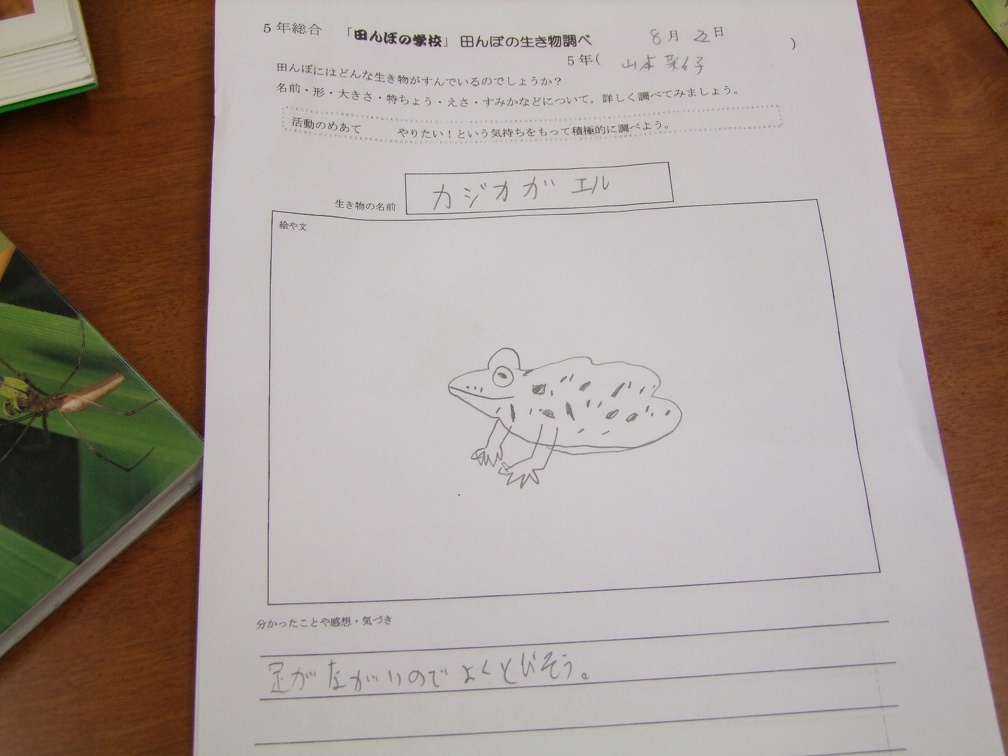 5年総合 「田んぼの学校」田んぼの生き物調べ 8月 日
5年( 山本 )
田んぼにはどんな生き物がすんでいるのでしょうか?
名前・形・大きさ・特ちょう・えさ・すみかなどについて,詳しく調べてみましょう。
活動のめあて やりたい!という気持ちをもって積極的に調べよう。
生き物の名前 カジカガエル
絵や文
分かったことや感想・気づき
足がながいのでよくとびそう。